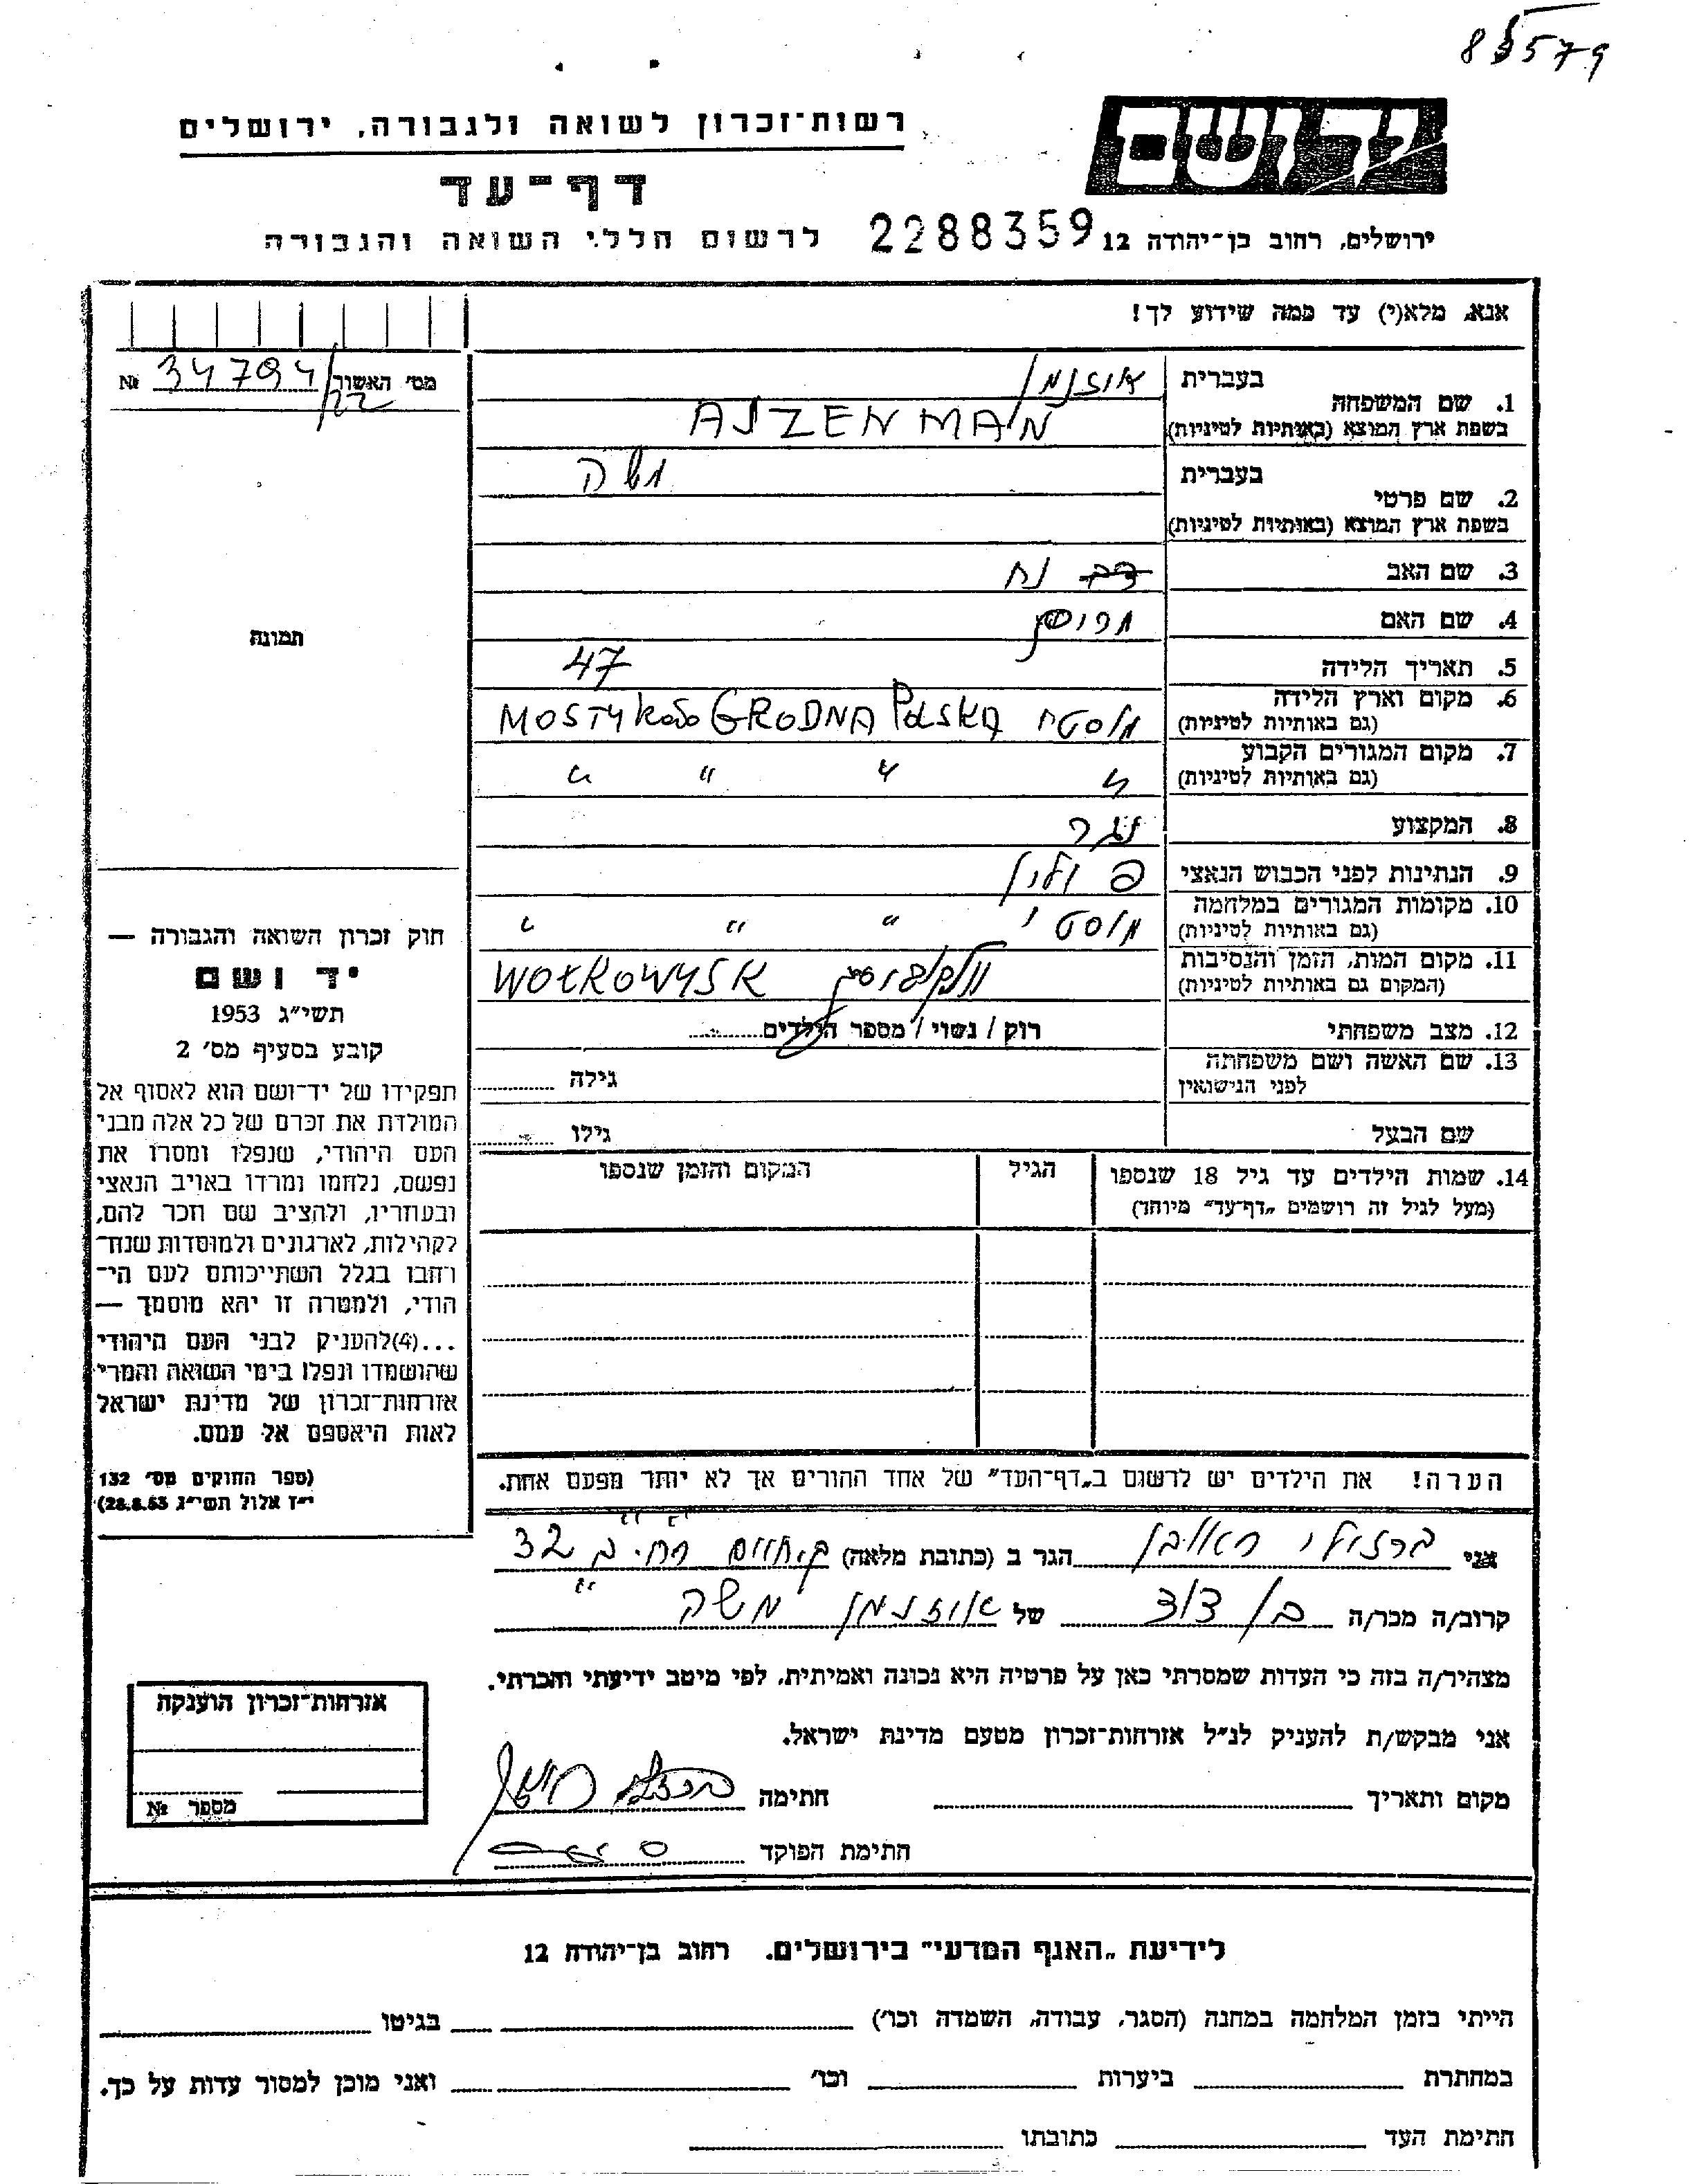 83579
ידושם
רשות־זכרון לשואה ולגבורה, ירושלים
דף־עד
ירושלים, רחוב בן־יהודה 12
2288359
לרשום חללי השואה והגבורה
אנא, מלא(י) עד כמה שידוע לך!
מס׳ האשור 34794/22 №
1. שם המשפחה
בעברית
אוזנמן
בשפת ארץ המוצא (באותיות לטיניות)
AJZENMAN
2. שם פרטי
בעברית
משה
בשפת ארץ המוצא (באותיות לטיניות)
3. שם האב
נח
4. שם האם
5. תאריך הלידה
47
6. מקום וארץ הלידה
(גם באותיות לטיניות)
מוסטי MOSTY koło GRODNA POLSKA
7. מקום המגורים הקבוע
(גם באותיות לטיניות)
" " " "
8. המקצוע
נגר
9. הנתינות לפני הכבוש הנאצי
פולין
10. מקומות המגורים במלחמה
(גם באותיות לטיניות)
מוסטי " " "
11. מקום המות, הזמן והנסיבות
(המקום גם באותיות לטיניות)
WOŁKOWYSK
12. מצב משפחתי
רוק / נשוי / מספר הילדים
13. שם האשה ושם משפחתה
לפני הנישואין
גילה
שם הבעל
גילו
14. שמות הילדים עד גיל 18 שנספו
(מעל לגיל זה רושמים „דף־עד״ מיוחד)
הגיל
המקום והזמן שנספו
תמונה
חוק זכרון השואה והגבורה —
יד ושם
תשי״ג 1953
קובע בסעיף מס׳ 2
תפקידו של יד־ושם הוא לאסוף אל
המולדת את זכרם של כל אלה מבני
העם היהודי, שנפלו ומסרו את
נפשם, נלחמו ומרדו באויב הנאצי
ובעוזריו, ולהציב שם וזכר להם,
לקהילות, לארגונים ולמוסדות שנח־
רחבו בגלל השתייכותם לעם הי־
הודי, ולמטרה זו יהא מוסמך —
...(4)להעניק לבני העם היהודי
שהושמדו ונפלו בימי השואה והמרי
אזרחות־זכרון של מדינת ישראל
לאות היאספם אל עמם.
(ספר החוקים מס׳ 132
י״ז אלול תשי״ג 28.8.53)
הערה! את הילדים יש לרשום ב„דף־העד״ של אחד ההורים אך לא יותר מפעם אחת.
אני ברזילי ראובן הגר ב (כתובת מלאה) 32
קרוב/ה מכר/ה בן דוד של אוזנמן משה
מצהיר/ה בזה כי העדות שמסרתי כאן על פרטיה היא נכונה ואמיתית, לפי מיטב ידיעתי והכרתי.
אני מבקש/ת להעניק לנ״ל אזרחות־זכרון מטעם מדינת ישראל.
מקום ותאריך
חתימה
חתימת הפוקד
אזרחות־זכרון הוענקה
מספר №
לידיעת „האגף המדעי״ בירושלים. רחוב בן־יהודה 12
הייתי בזמן המלחמה במחנה (הסגר, עבודה, השמדה וכו׳)
בגיטו
במחתרת
ביערות
וכו׳
ואני מוכן למסור עדות על כך.
חתימת העד
כתובתו